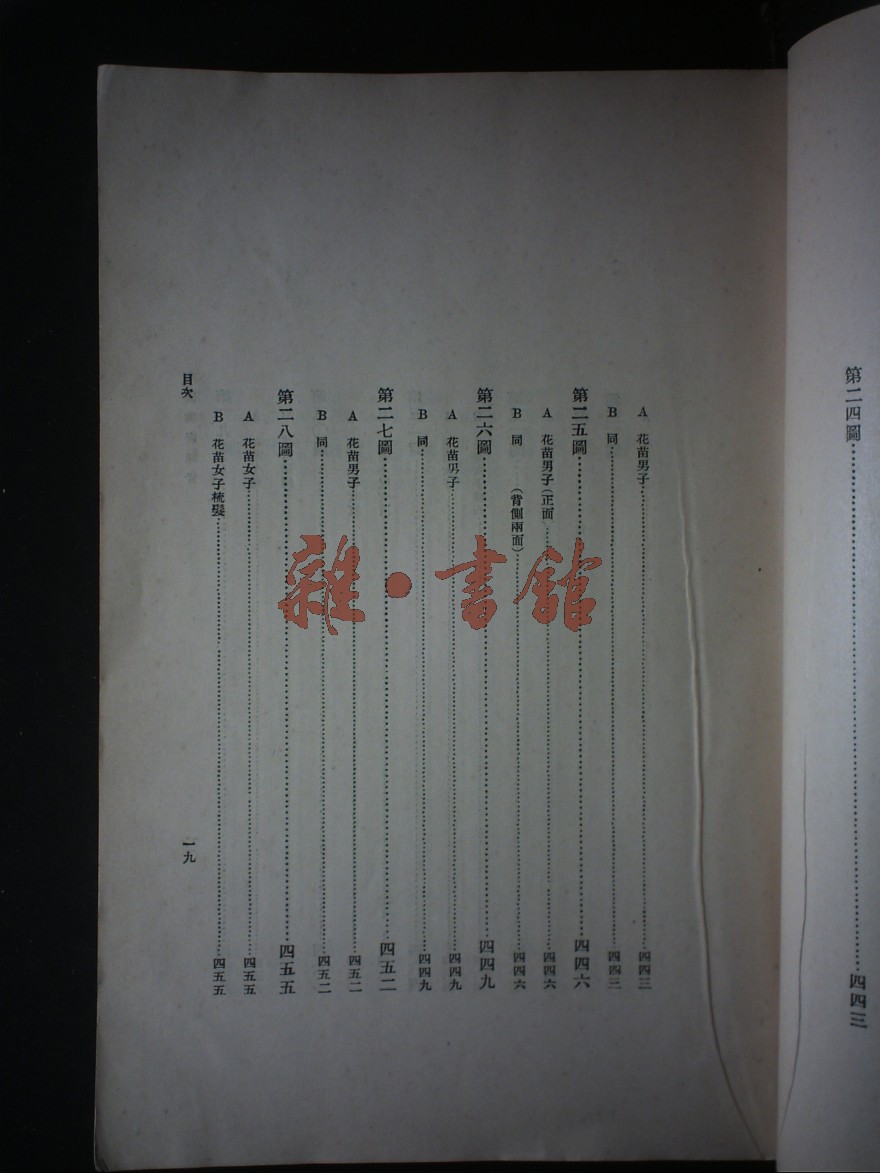 第二四圖⋯⋯四四三
A 花苗男子⋯⋯四四三
B 同⋯⋯四四三
第二五圖⋯⋯四四六
A 花苗男子(正面)⋯⋯四四六
B 同 (背側兩面)⋯⋯四四六
第二六圖⋯⋯四四九
A 花苗男子⋯⋯四四九
B 同⋯⋯四四九
第二七圖⋯⋯四五二
A 花苗男子⋯⋯四五二
B 同⋯⋯四五二
第二八圖⋯⋯四五五
A 花苗女子⋯⋯四五五
B 花苗女子梳髮⋯⋯四五五
目次
一九
雜·書館